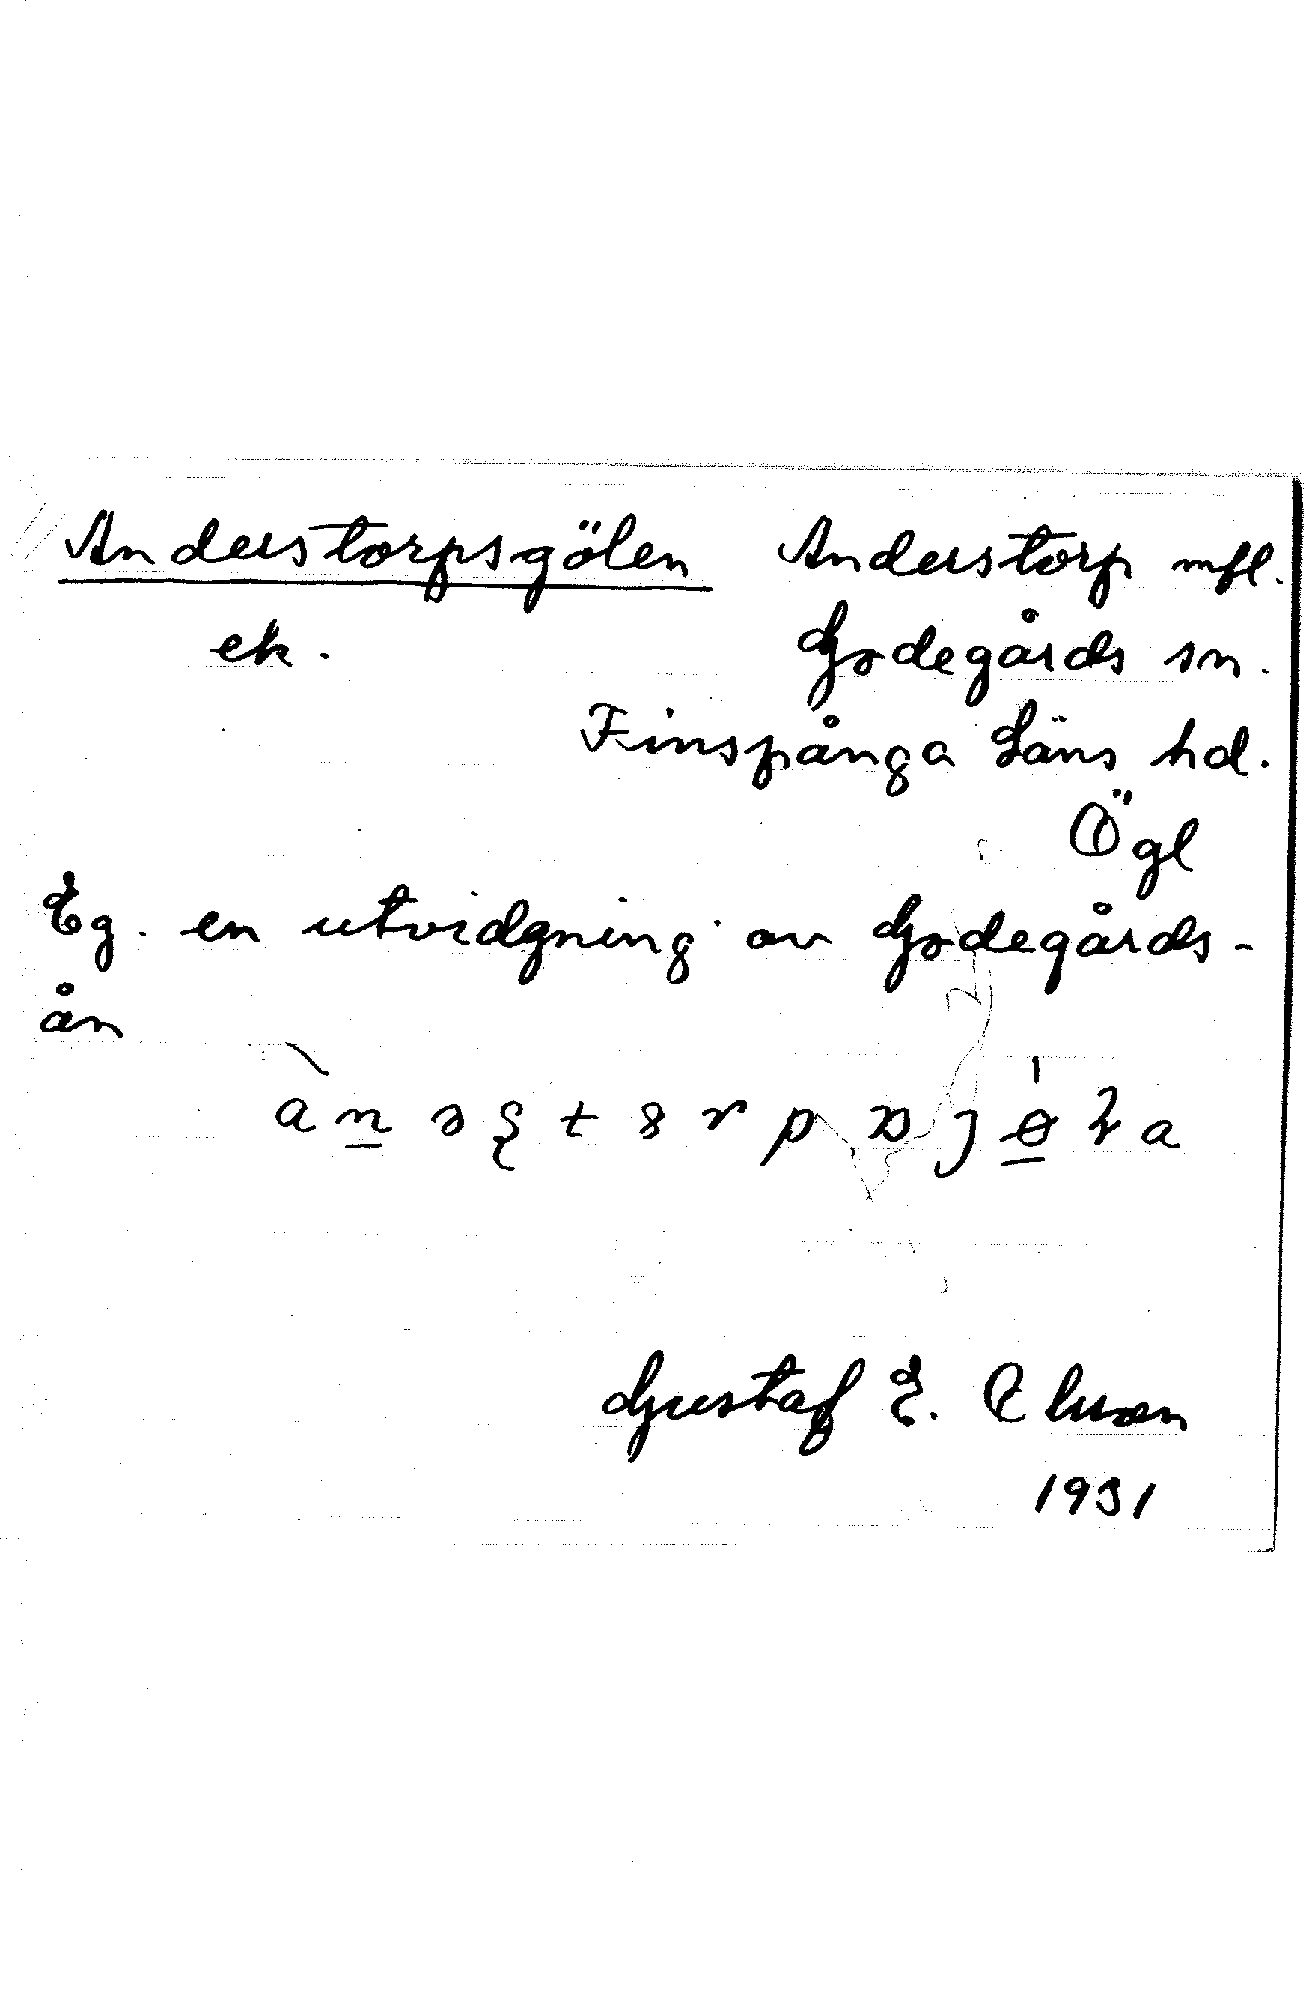 Anderstorpsgölen Anderstorp mfl.
ek. Godegårds sn.
Finspånga Läns hd.
Ögl
Eg. en utvidgning av Godegårds-
ån
Gustaf E. Olsson
1931